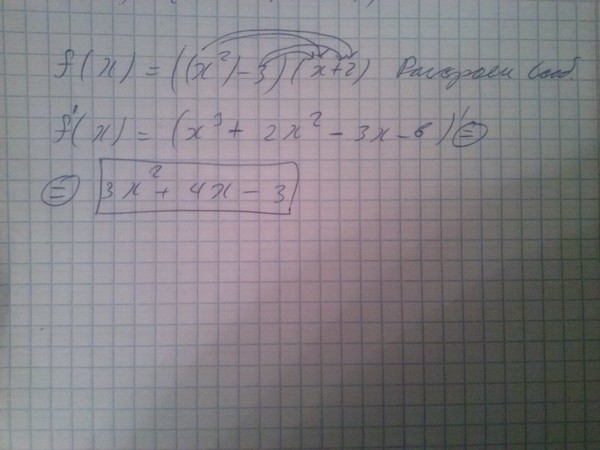 f(x) = ((x²)-3)(x+2) Раскроем
f'(x) = (x³ + 2x² - 3x - 6)' =
= 3x² + 4x - 3